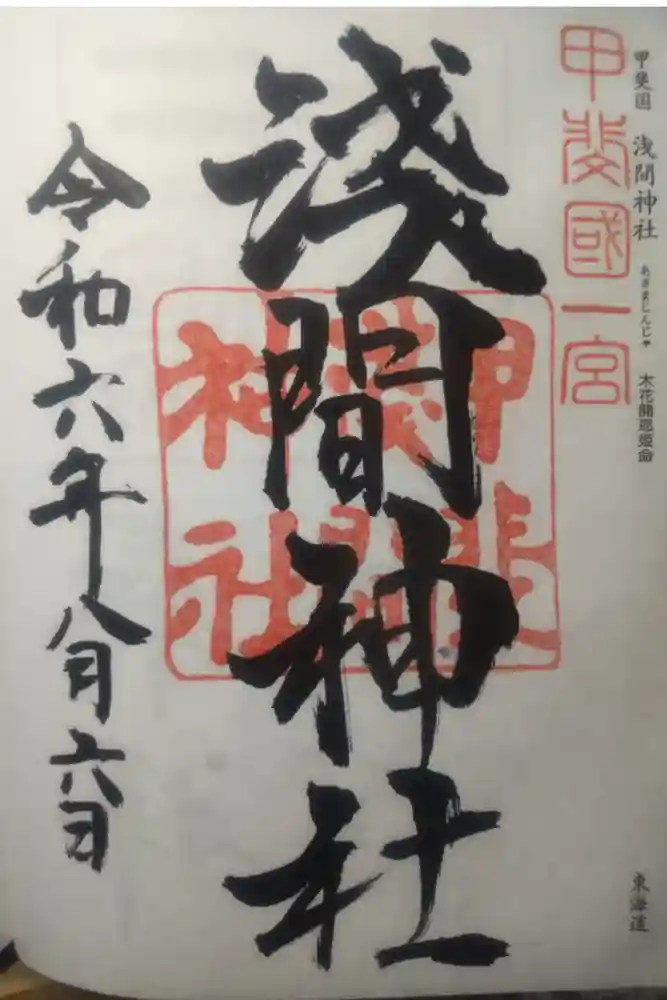 甲斐国 浅間神社 あさまじんじゃ 木花開耶姫命
東海道
甲斐國一宮
浅間神社
甲斐
浅間
神社
令和六年八月六日